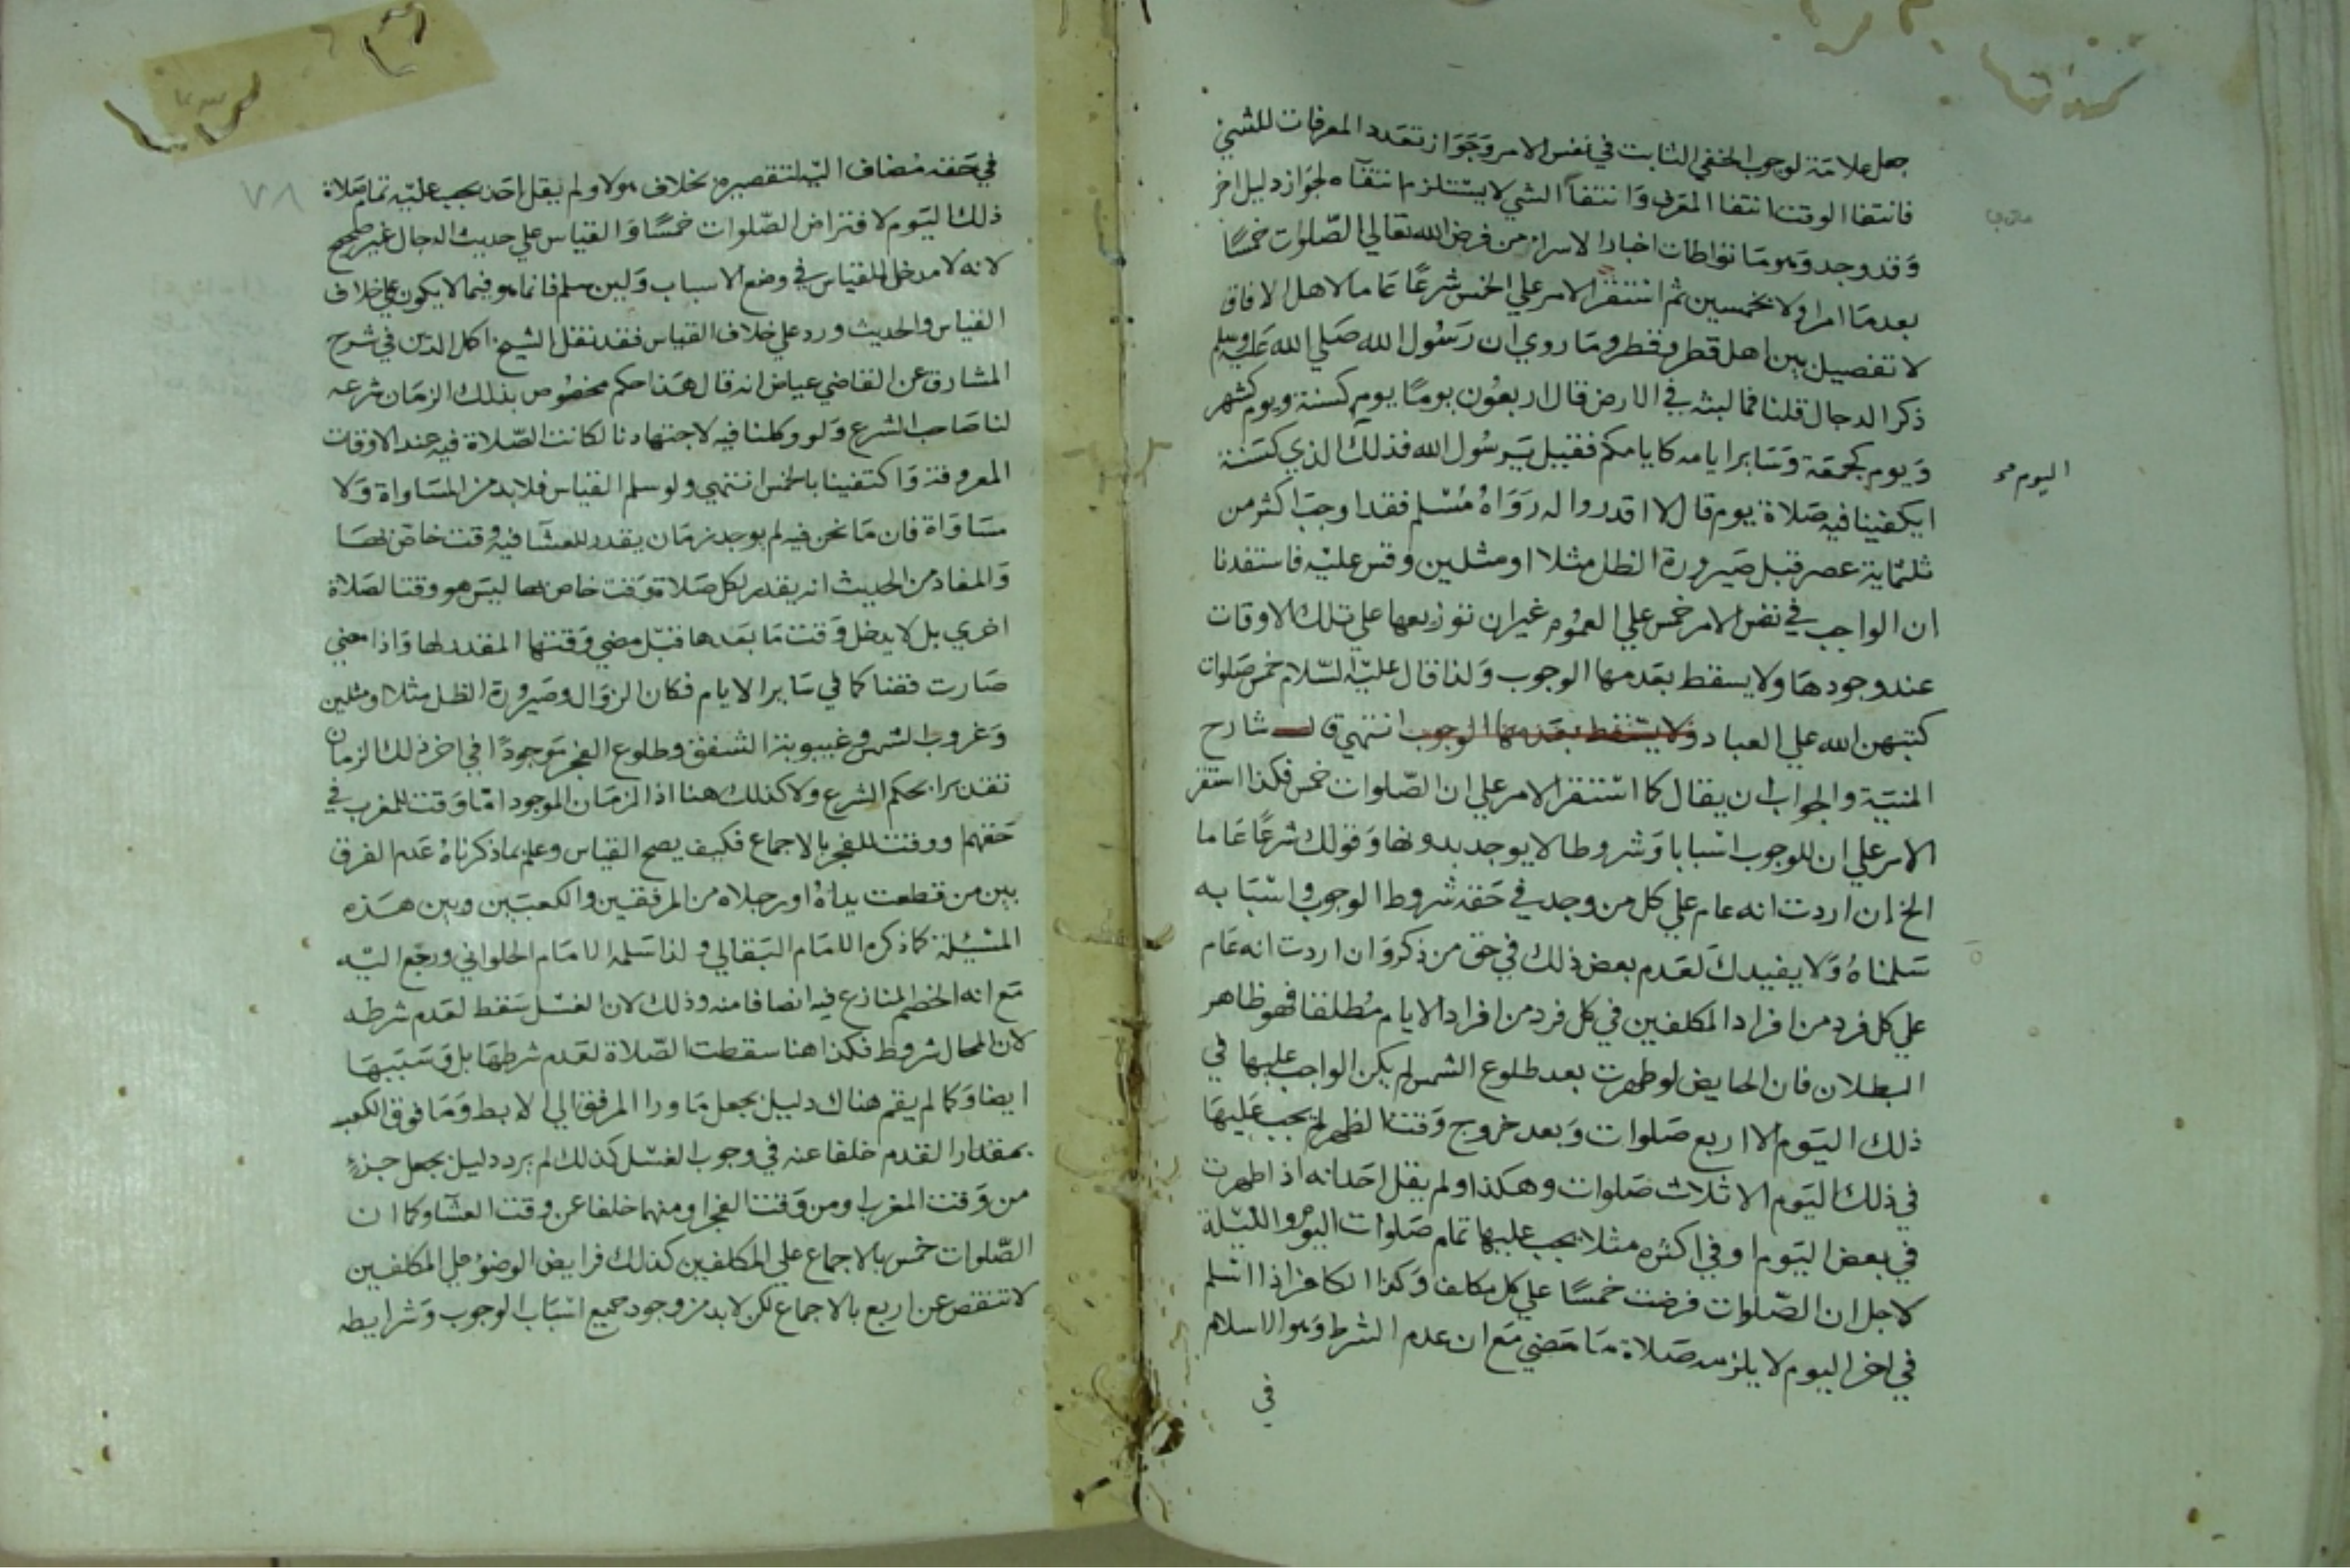 جعل علامة لوجوب الخفي الثابت في نفس الامر وجواز تعدد المعرفات للشي
فانتفا الوقت انتفا المعرف وانتفآ الشي لا يستلزم انتفآه لجواز دليل اخر
وقد وجد وهو ما تواطات اخبار الاسرا من فرض الله تعالي الصلوات خمسًا
بعد ما امر اولا بخمسين ثم استقر الامر علي الخمس شرعًا عاما لاهل الافاق
لا تفصيل بين اهل قطر وقطر وما روي ان رسول الله صلي الله عليه وسلم
ذكر الدجال قلنا فما لبثه في الارض قال اربعون يومًا يوم كسنة ويوم كشهر
ويوم كجمعة وساير ايامه كايامكم فقيل يرسول الله فذلك الذي كسنة
اليوم صح
ايكفينا فيه صلاة يوم قال لا اقدروا له رواه مسلم فقد اوجب اكثر من
ثلثماية عصر قبل صيرورة الظل مثلا او مثلين وقس عليه فاستفدنا
ان الواجب في نفس الامر خمس علي العموم غير ان توزيعها علي تلك الاوقات
عند وجودها ولا يسقط بعدمها الوجوب ولذا قال عليه السلام خمس صلوات
كتبهن الله علي العباد ولا يسقط بعدمها الوجوب انتهي قال شارح
المنية والجواب ان يقال كما استقر الامر علي ان الصلوات خمس فكذا استقر
الامر علي ان للوجوب اسبابا وشروطا لا يوجد بدونها وقولك شرعًا عاما
الخ ان اردت انه عام علي كل من وجد في حقه شروط الوجوب واسبابه
سلمناه ولا يفيدك لعدم بعض ذلك في حق من ذكر وان اردت انه عام
علي كل فرد من افراد المكلفين في كل فرد من افراد الايام مطلقا فهو ظاهر
البطلان فان الحايض لو طهرت بعد طلوع الشمس لم يكن الواجب عليها في
ذلك اليوم الا اربع صلوات وبعد خروج وقت الظهر لم يجب عليها
في ذلك اليوم الا ثلاث صلوات وهكذا ولم يقل احد انه اذا طهرت
في بعض اليوم او في اكثره مثلا يجب عليها تمام صلوات اليوم والليلة
لاجل ان الصلوات فرضت خمسًا علي كل مكلف وكذا الكافر اذا اسلم
في اخر اليوم لا يلزمه صلاة ما مضي مع ان عدم الشرط وهو الاسلام
في
٧٨
في حقه مضاف اليه لتقصيره بخلاف هولاء ولم يقل احد يجب عليه تمام صلاة
ذلك اليوم لافتراض الصلوات خمسًا والقياس علي حديث الدجال غير صحيح
لانه لا مدخل للقياس في وضع الاسباب ولين سلم فانما هو فيما لا يكون علي خلاف
القياس والحديث ورد علي خلاف القياس فقد نقل الشيخ اكمل الدين في شرح
المشارق عن القاضي عياض انه قال هذا حكم مخصوص بذلك الزمان شرعه
لنا صاحب الشرع ولو وكلنا فيه لاجتهادنا لكانت الصلاة فيه عند الاوقات
المعروفة واكتفينا بالخمس انتهي ولو سلم القياس فلا بد من المساواة ولا
مساواة فان ما نحن فيه لم يوجد زمان يقدر للعشا فيه وقت خاص لها
والمفاد من الحديث انه يقدر لكل صلاة وقت خاص لها ليس هو وقتا لصلاة
اخري بل لا يدخل وقت ما بعدها قبل مضي وقتها المقدر لها واذا مضي
صارت قضا كما في ساير الايام فكان الزوال وصيرورة الظل مثلا او مثلين
وغروب الشمس وغيبوبة الشفق وطلوع الفجر موجودًا في اخر ذلك الزمان
تقديرا بحكم الشرع ولا كذلك هنا اذ الزمان الموجود اما وقت للمغرب في
حقهم او وقت للفجر بالاجماع فكيف يصح القياس وعلم بما ذكرناه عدم الفرق
بين من قطعت يداه او رجلاه من المرفقين والكعبين وبين هذه
المسئلة كما ذكره الامام البقالي ولذا سلمه الامام الحلواني ورجع اليه
مع انه الخصم المنازع فيه انصافا منه وذلك لان الغسل سقط لعدم شرطه
لان المحال شروط فكذا هنا سقطت الصلاة لعدم شرطها بل وسببها
ايضا وكما لم يقم هناك دليل يجعل ما ورا المرفق الي الابط وما فوق الكعب
بمقدار القدم خلفا عنه في وجوب الغسل كذلك لم يرد دليل يجعل جزء
من وقت المغرب او من وقت الفجر او منهما خلفا عن وقت العشا وكما ان
الصلوات خمس بالاجماع علي المكلفين كذلك فرايض الوضوء علي المكلفين
لا تنقص عن اربع بالاجماع لكن لا بد من وجود جميع اسباب الوجوب وشرايطه